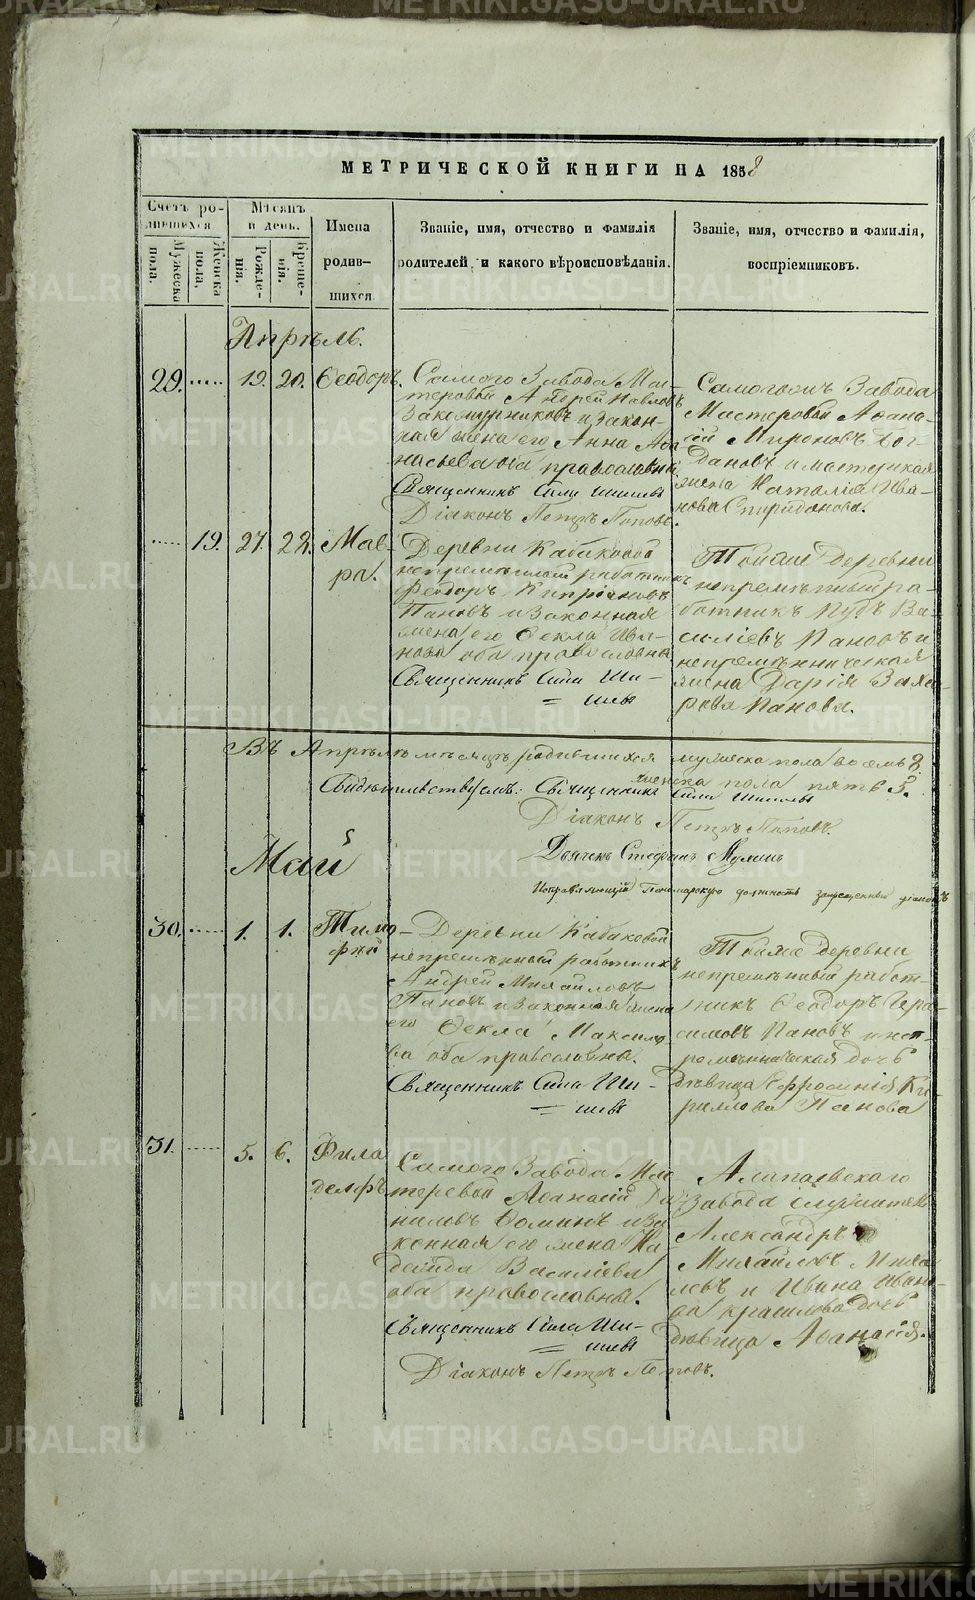 МЕТРИЧЕСКОЙ КНИГИ НА 1858
Счетъ ро-
дившихся
Мужеска
пола.
Женска
пола.
Мѣсяцъ
и день.
Рожде-
нія.
Креще-
нія.
Имена
родив-
шихся
Званіе, имя, отчество и фамилія
родителей, и какого вѣроисповѣданія.
Званіе, имя, отчество и фамилія,
воспріемниковъ.
Апрѣль.
29. 19. 20. Ѳеодоръ.
Самого Завода Мас-
теровой Андрей Павловъ
и закон-
ная жена его Анна Аѳа
насьева оба православны
Священникъ Сила Шишевъ
Діаконъ Петръ Поповъ.
Завода
Мастеровой Аѳана-
сій Мироновъ Бог
дановъ и мастерская
жена Наталія Ива-
нова Спиридонова.
19. 27. 28. Мав-
ра.
Деревни Кабаковой
непремѣнный работникъ
Феодоръ Кипріяновъ
Пановъ и законная
жена его Ѳекла Ива-
нова оба православна
Священникъ Сила Ши-
шевъ
Тойже деревни
непремѣнный ра-
ботникъ Иудъ Ва-
силіевъ Пановъ и
непремѣнническая
жена Дарія Заха-
рова Панова.
Въ Апрѣлѣ мѣсяцѣ родившихся мужеска пола восемь 8.
женска пола пять 5.
Свидѣтельствуемъ: Священникъ Сила Шишевъ
Діаконъ Петръ Поповъ.
Дьячекъ Стефанъ
Исправляющій Пономарскую должность запрещенный діаконъ
Май
30. 1. 1. Тимо-
фѣй
Деревни Кабаковой
непремѣнный работникъ
Андрей Михайловъ
Пановъ и законная жена
его Ѳекла Максимо
ва оба православны.
Священникъ Сила Ши-
шевъ
Тойже деревни
непремѣнный работ-
никъ Ѳеодоръ Гера-
симовъ Пановъ и неп-
ремѣнническая дочь
дѣвица Ефросинія Ки-
рилова Панова
31. 5. 6. Фила
делфъ
Самого Завода Мас
теровой Аѳанасій Да-
ниловъ Ѳоминъ и за
конная его жена На
дежда Василіева
оба православны.
Священникъ Сила Ши-
шевъ
Діаконъ Петръ Поповъ.
Алапаевского
Завода служитель
Александръ
Михайловъ Михай
левъ и Ивана Ивано-
ва дочь
дѣвица Аѳанасія.